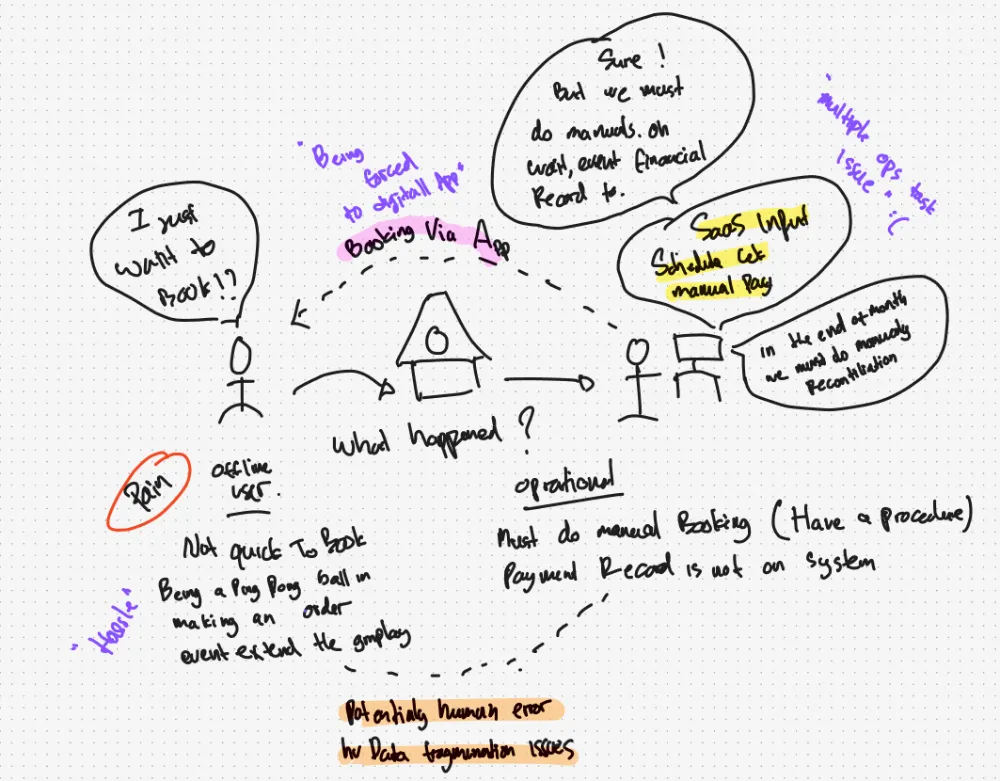 Sure !
But we must
do manuals. oh
wait, event financial
Record to.
"multiple ops task
issue" :(
"Being
forced
to digitall App"
Booking Via App
I just
want to
Book!?
SaaS Input
Schedule Cek
manual Pay
in the end of month
we must do manualy
Reconciliation
What happened ?
Pain
offline
user.
oprational
Not quick To Book
Being a Ping Pong ball in
making an order
event extend the
Must do manual Booking (Have a procedure)
Payment Record is not on system
"Hassle"
Potentialy human error
Data fragmentation issues